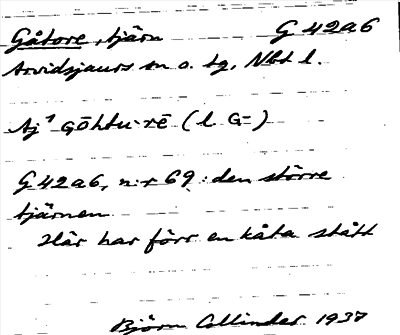 Gåtore, tjärn G 42a6
Arvidsjaurs sn o. tg, Nbt l.
Aj¹ Gōhtu·rē (l G=)
G 42a6, n:r 69: den större
tjärnen
Här har förr en kåta stått
Björn Collinder 1937